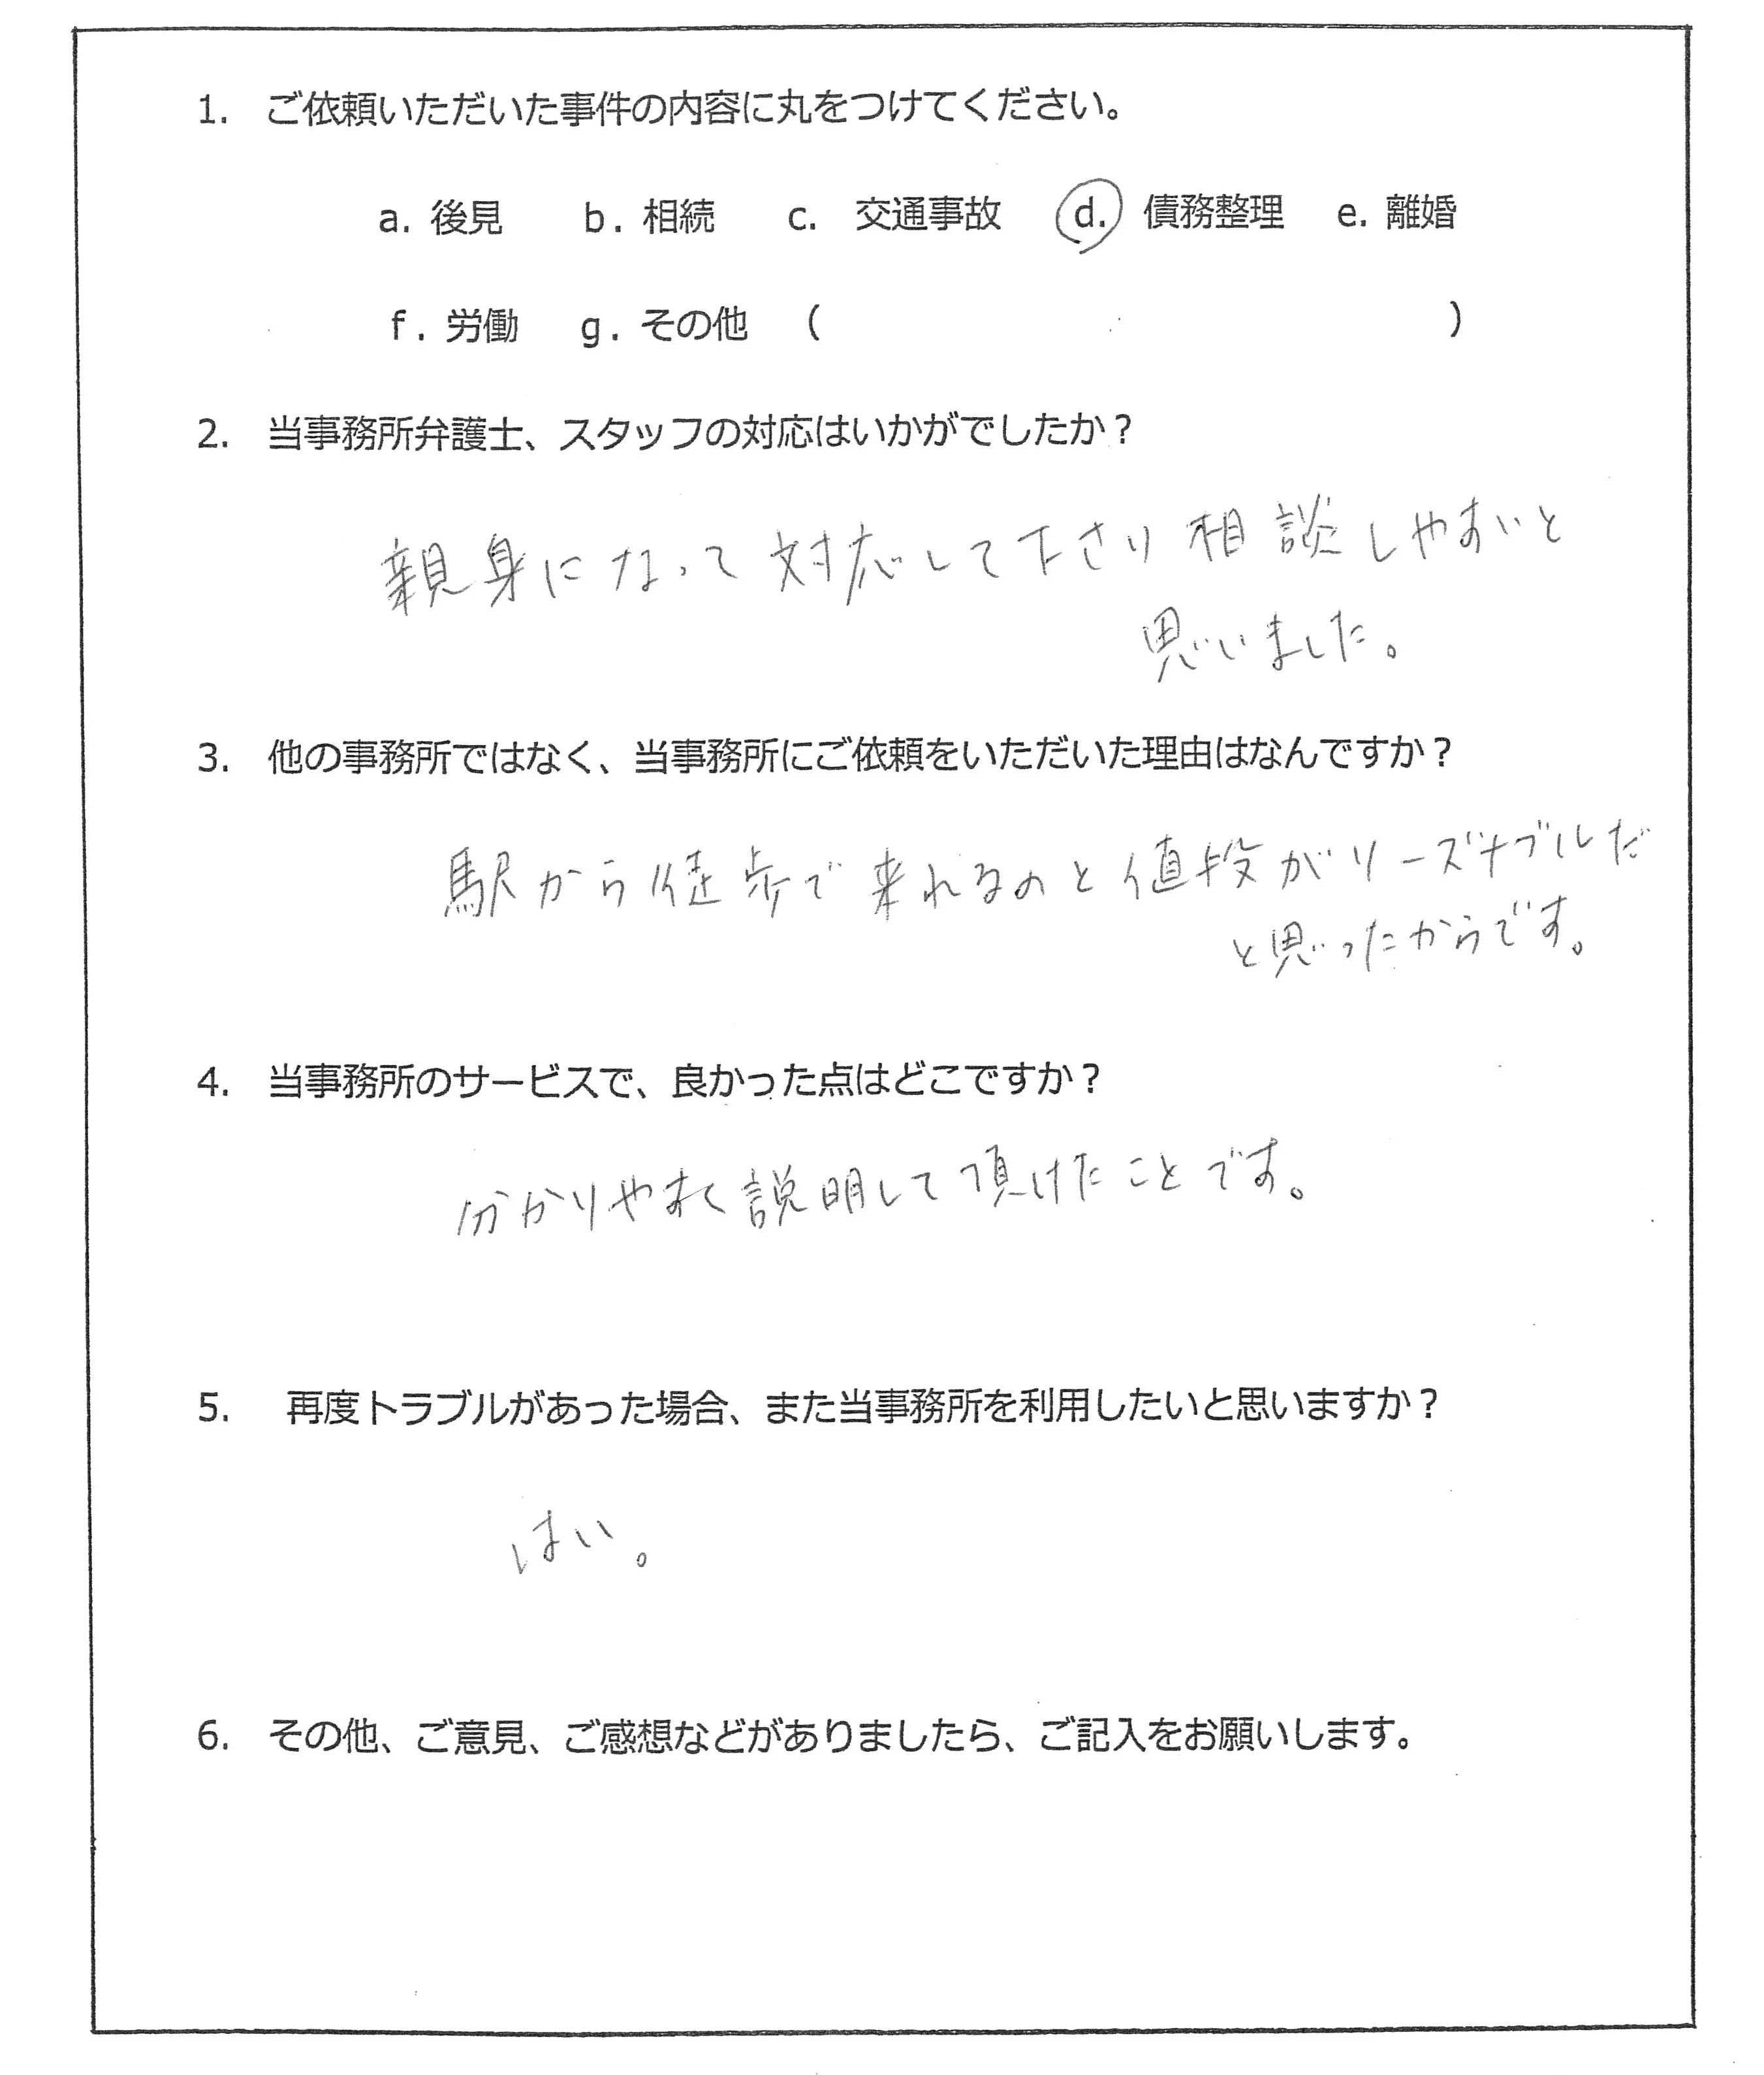 1. ご依頼いただいた事件の内容に丸をつけてください。
a. 後見 b. 相続 c. 交通事故 d. 債務整理 e. 離婚
f. 労働 g. その他 ( )
2. 当事務所弁護士、スタッフの対応はいかがでしたか？
親身になって対応して下さり相談しやすいと
思いました。
3. 他の事務所ではなく、当事務所にご依頼をいただいた理由はなんですか？
駅から徒歩で来れるのと値段がリーズナブルだ
と思ったからです。
4. 当事務所のサービスで、良かった点はどこですか？
分かりやすく説明して頂けたことです。
5. 再度トラブルがあった場合、また当事務所を利用したいと思いますか？
はい。
6. その他、ご意見、ご感想などがありましたら、ご記入をお願いします。